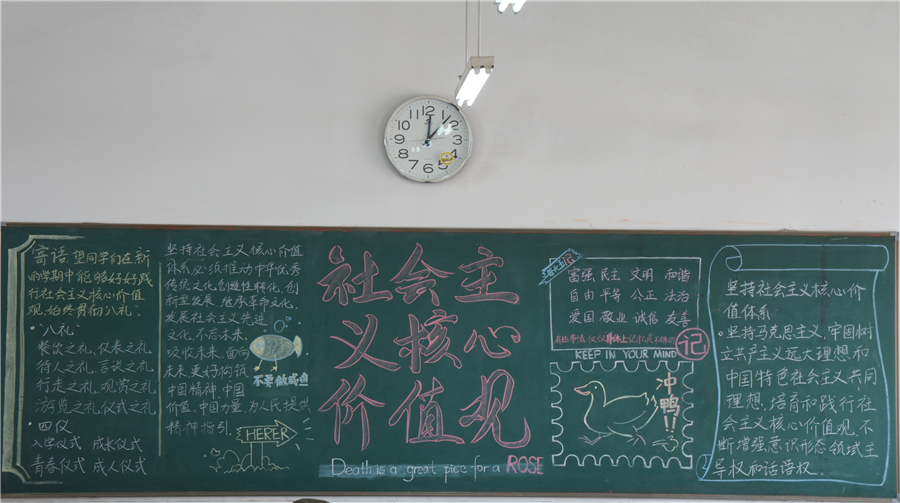 12
寄语 望同学们在新
的学期中能够好好践
行社会主义核心价值
观,始终贯彻"八礼".
·"八礼"
餐饮之礼、仪表之礼
待人之礼、言谈之礼
行走之礼、观赏之礼
游览之礼、仪式之礼
·四仪
入学仪式 成长仪式
青春仪式 成人仪式
坚持社会主义核心价值
体系必须推动中华优秀
传统文化创造性转化,创
新型发展,继承革命文化,
发展社会主义先进
文化,不忘本来
吸收未来,面向
未来更好构筑
中国精神、中国
价值、中国力量,为人民提供
精神指引.
不要做咸鱼
HERER
社会主
义核心
价值观
Death is a great pice for a ROSE
富强 民主 文明 和谐
自由 平等 公正 法治
爱国 敬业 诚信 友善
记
KEEP IN YOUR MIND
冲
鸭!!
坚持社会主义核心价
值体系
·坚持马克思主义,牢固树
立共产主义远大理想和
中国特色社会主义共同
理想,培育和践行社
会主义核心价值观,不
断增强意识形态领域主
导权和话语权.